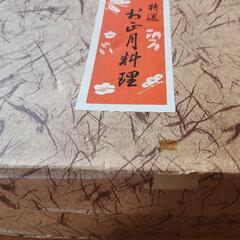 特選
お正月料理